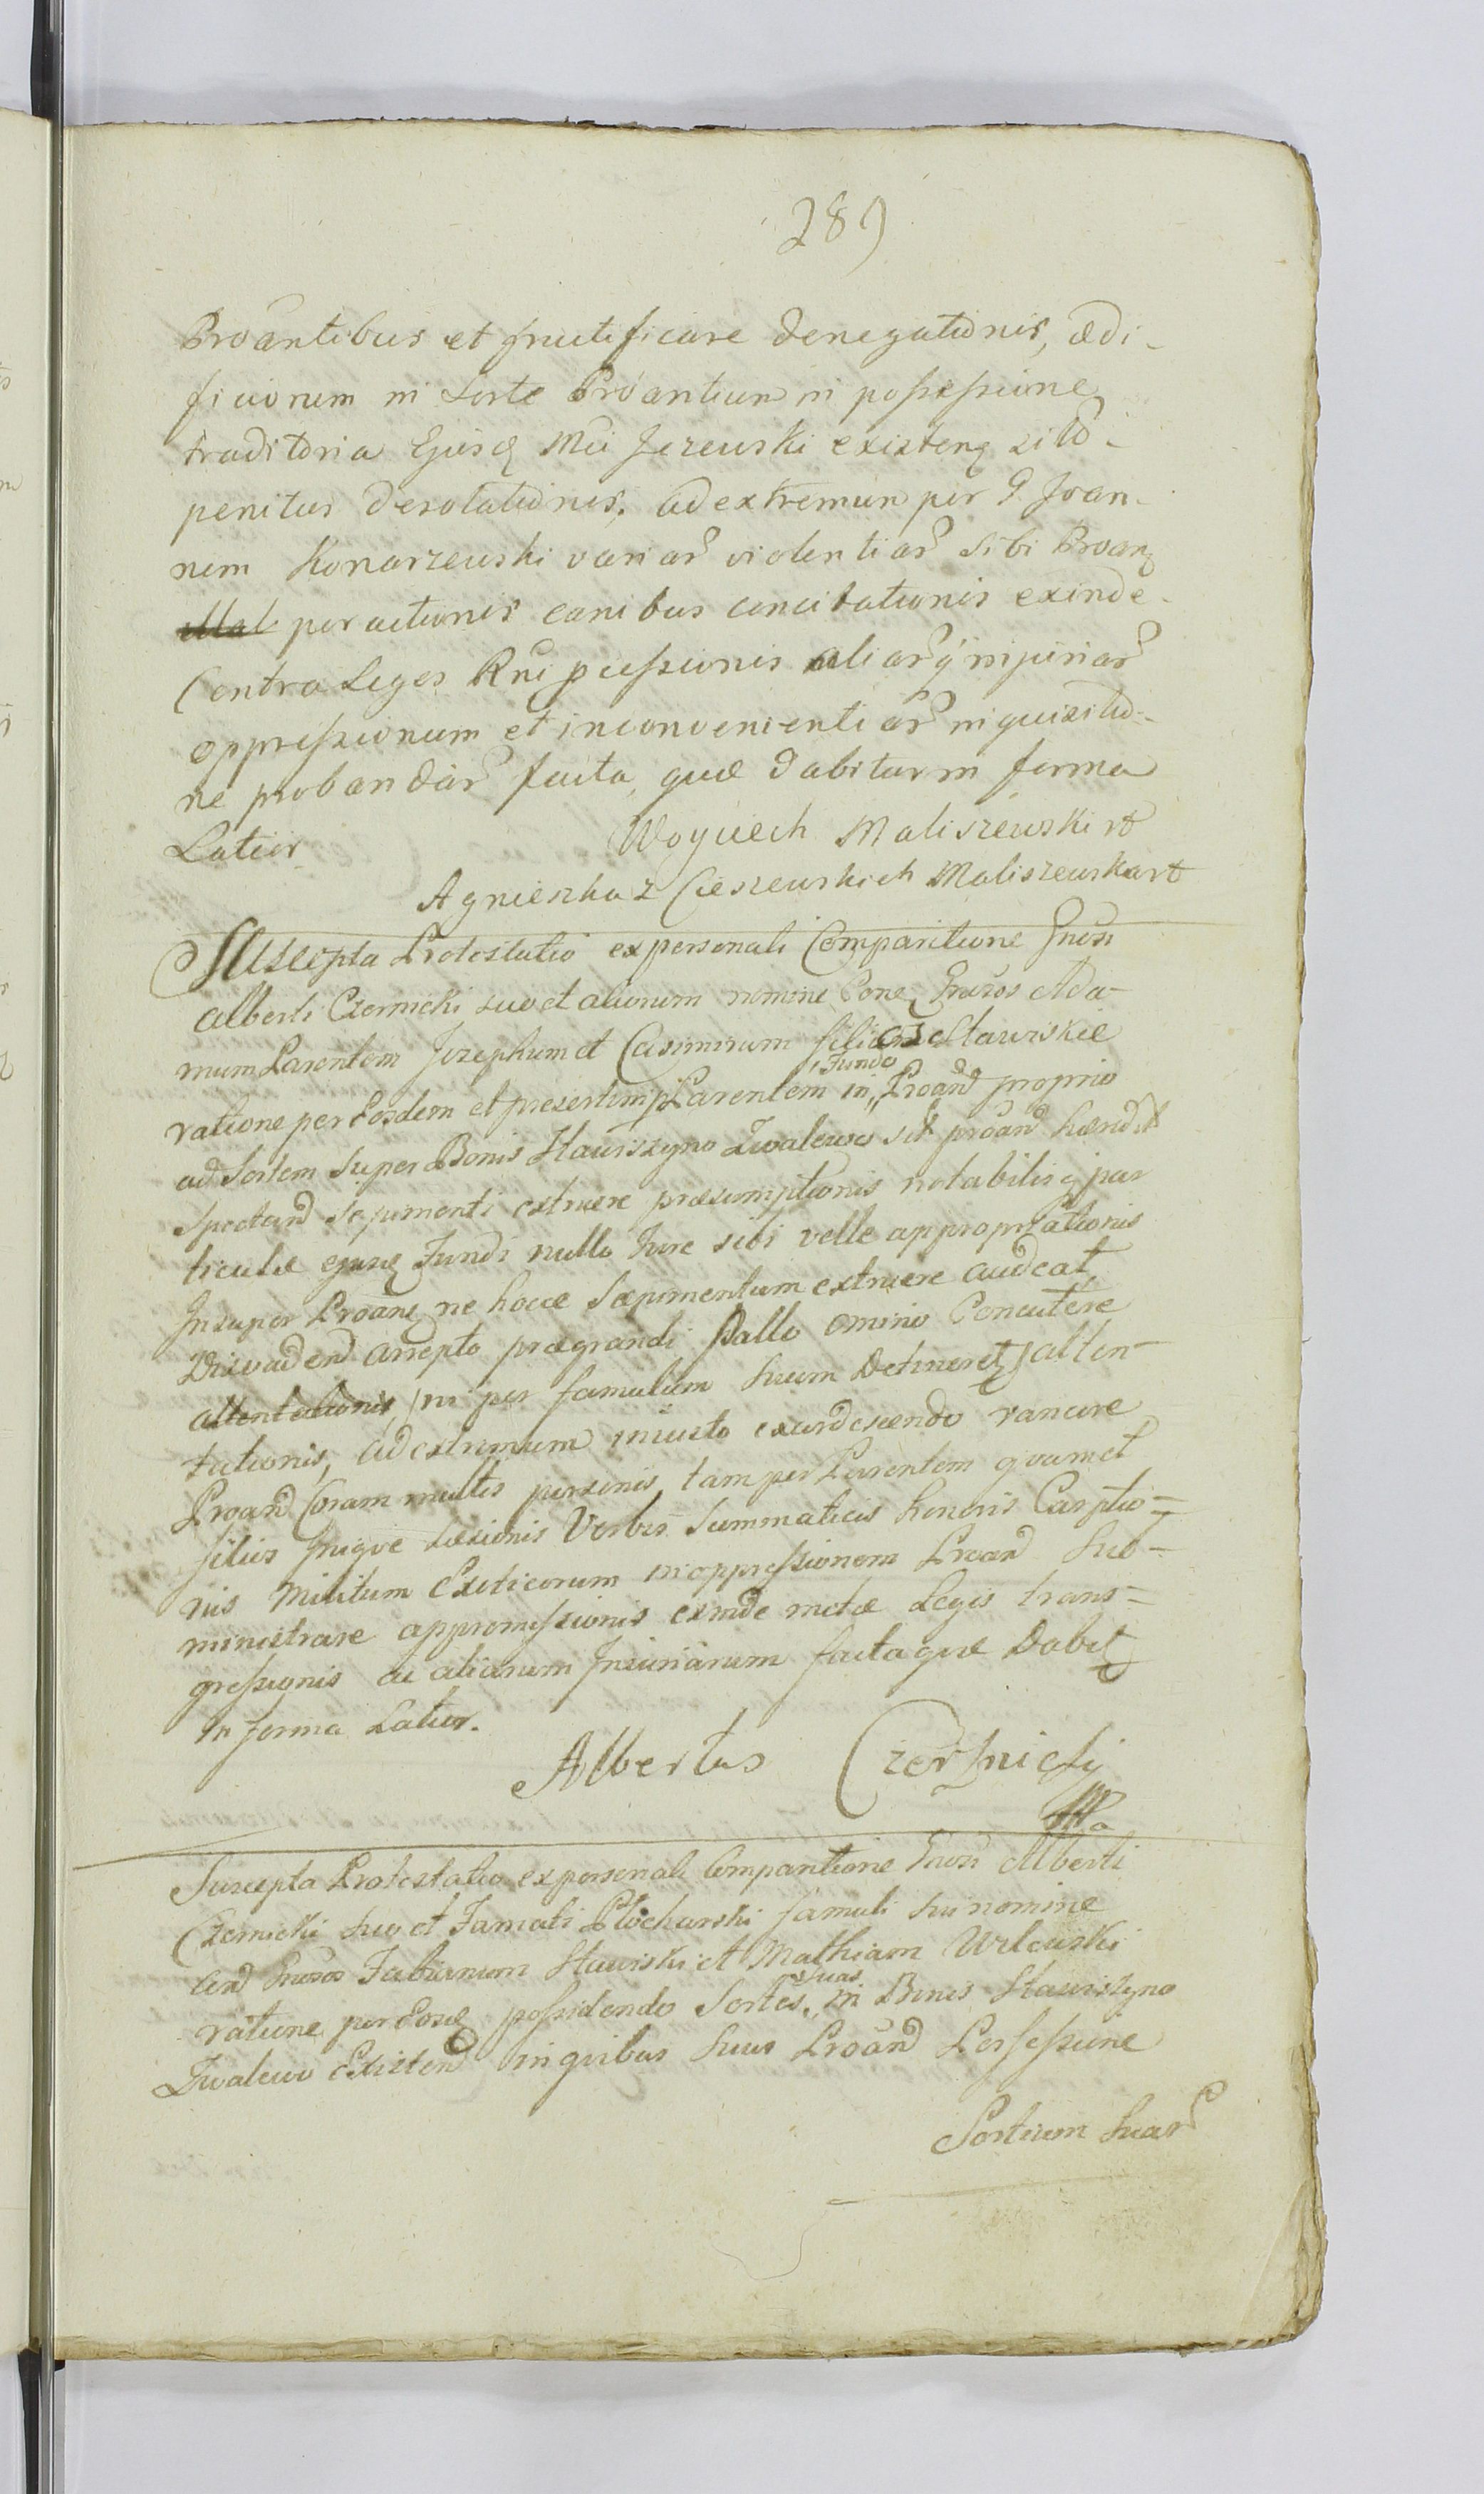 289
Proantibus et fructificare denegationis, ædi-
ficiorum in Sorte Proantium in possessione
traditoria Ejusq Mci Jezewski existenq sito-
penitus desolationis, ad extremum per G. Joan-
nem Konarzewski variar violentiar sibi Proanq
peractionis canibus concitationis exinde
Contra Leges Rni pcessionis aliarq injuriar
oppressionum et inconvenientiar inquisitio-
ne probandar facta, quæ dabitur in forma
Latior Woyciech Maliszewski
Agnieszka z Cieszewskich Maliszewska
Suscepta Protestatio ex personali Comparitione Gnosi
Alberti Czernicki suo et aliorum nomine Conq Gnosos Ada-
mum Parentem Josephum et Casimirum filios Stawiskie
ratione per Eosdem et presertim Parentem in Proand proprio
Fundo
ad Sortem super Bonis Stawiszyno Zwalewo proand
Spectand sepimenti extruere præsumptionis notabilisq par
ticulæ ejusq Fundi nullo Jure sibi velle appropriationis
Insuper Proanq ne hocce Sæpimentum extruere audeat
Disuadend arrepto prægrandi Pallo omnino Concutere
attentationis, ni per famulum suum Detineretq atten-
tationis, ad extremum iniusto exardescendo rancore
Proand Coram multis personis, tam per Parentem quam et
filios Inique Læsionis Verbis Summaticis honoris Carptio-
nis Militum Exoticorum in oppressionem Proand Sub-
ministrare appromissionis exinde metæ Legis trans-
gressionis ac aliarum Injuriarum facta quæ Dabitq
in forma Latior.
Albertus Czernicki
Suscepta Protestatio ex personali Comparitione Gnosi Alberti
Czernicki suo et Famati Plocharski famuli sui nomine
Gnosos Fabianum Stawiski et Mathiam
ratione per Eosq possidendo Sortes suas in Bonis Stawiszyno
Zwalewo Existend in quibus suus Proand Possessione
Sortium suar